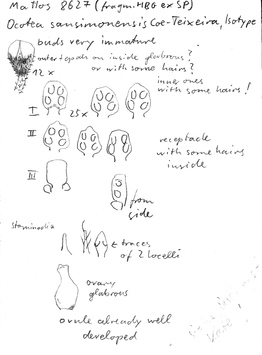 Mattos 8627 (fragm. HBG ex SP)
Ocotea sansimonensis Coe-Teixeira, Isotype
buds very immature
outer tepals on inside glabrous?
or with some hairs?
inner ones
with some hairs!
12 x
I
25 x
II
receptacle
with some hairs
inside
III
from
side
staminodia
traces
of 2 locelli
ovary
glabrous
ovule already well
developed